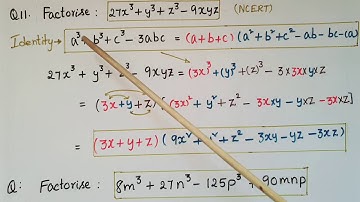 Q11. Factorise: 27x³+y³+z³-9xyz (NCERT)
Identity→ a³+b³+c³-3abc = (a+b+c)(a²+b²+c²-ab-bc-ca)
27x³+y³+z³-9xyz = (3x)³+(y)³+(z)³-3×3x×y×z
= (3x+y+z)[(3x)²+y²+z²-3x×y-y×z-3x×z]
= (3x+y+z)(9x²+y²+z²-3xy-yz-3xz)
Q: Factorise: 8m³+27n³-125p³+90mnp